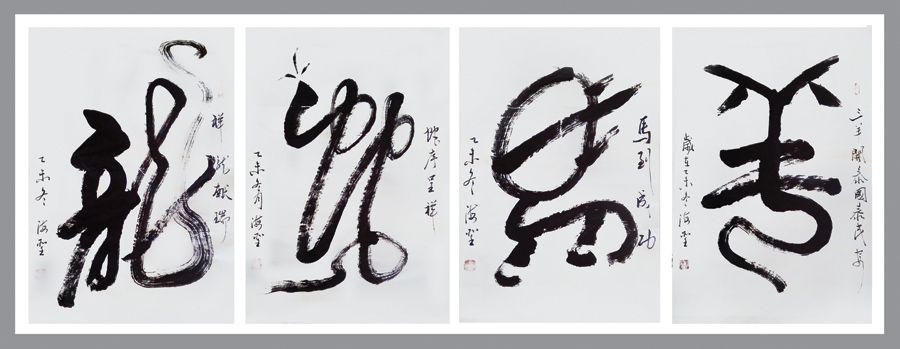 龍
祥龍獻瑞
乙未冬 海
蛇
蛇年呈祥
乙未冬月 海
馬
馬到成功
乙未冬 海
羊
三羊開泰國泰民安
歲在乙未冬 海